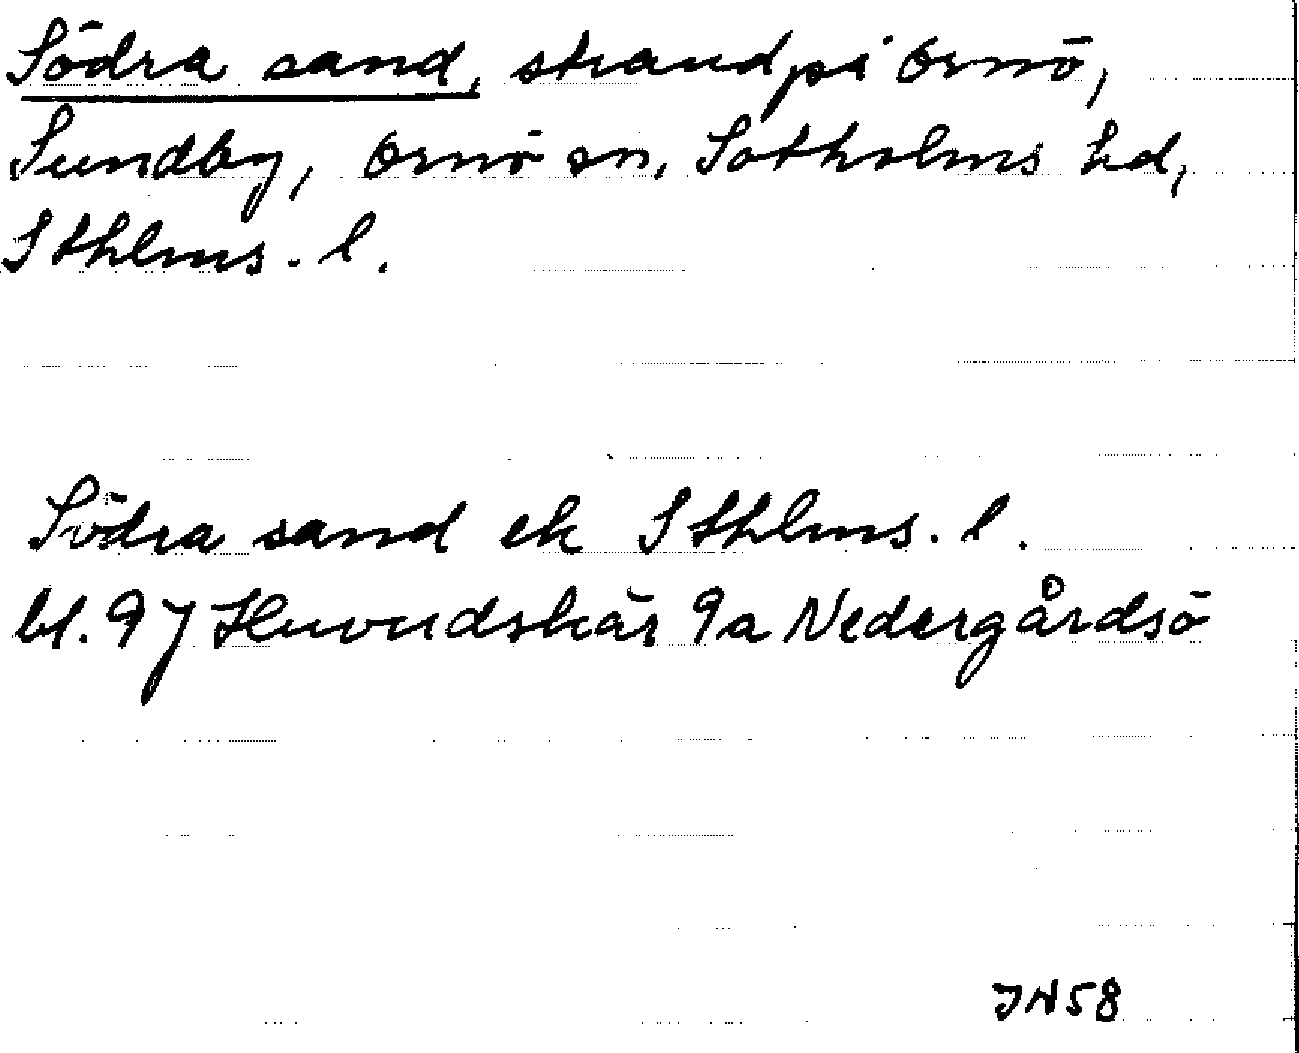 Södra sand, strand på Ornö,
Sundby, Ornö sn, Sotholms hd,
Sthlms. l.
Södra sand ek Sthlms. l.
bl. 97 Huvudskär 9a Nedergårdsö
JN58